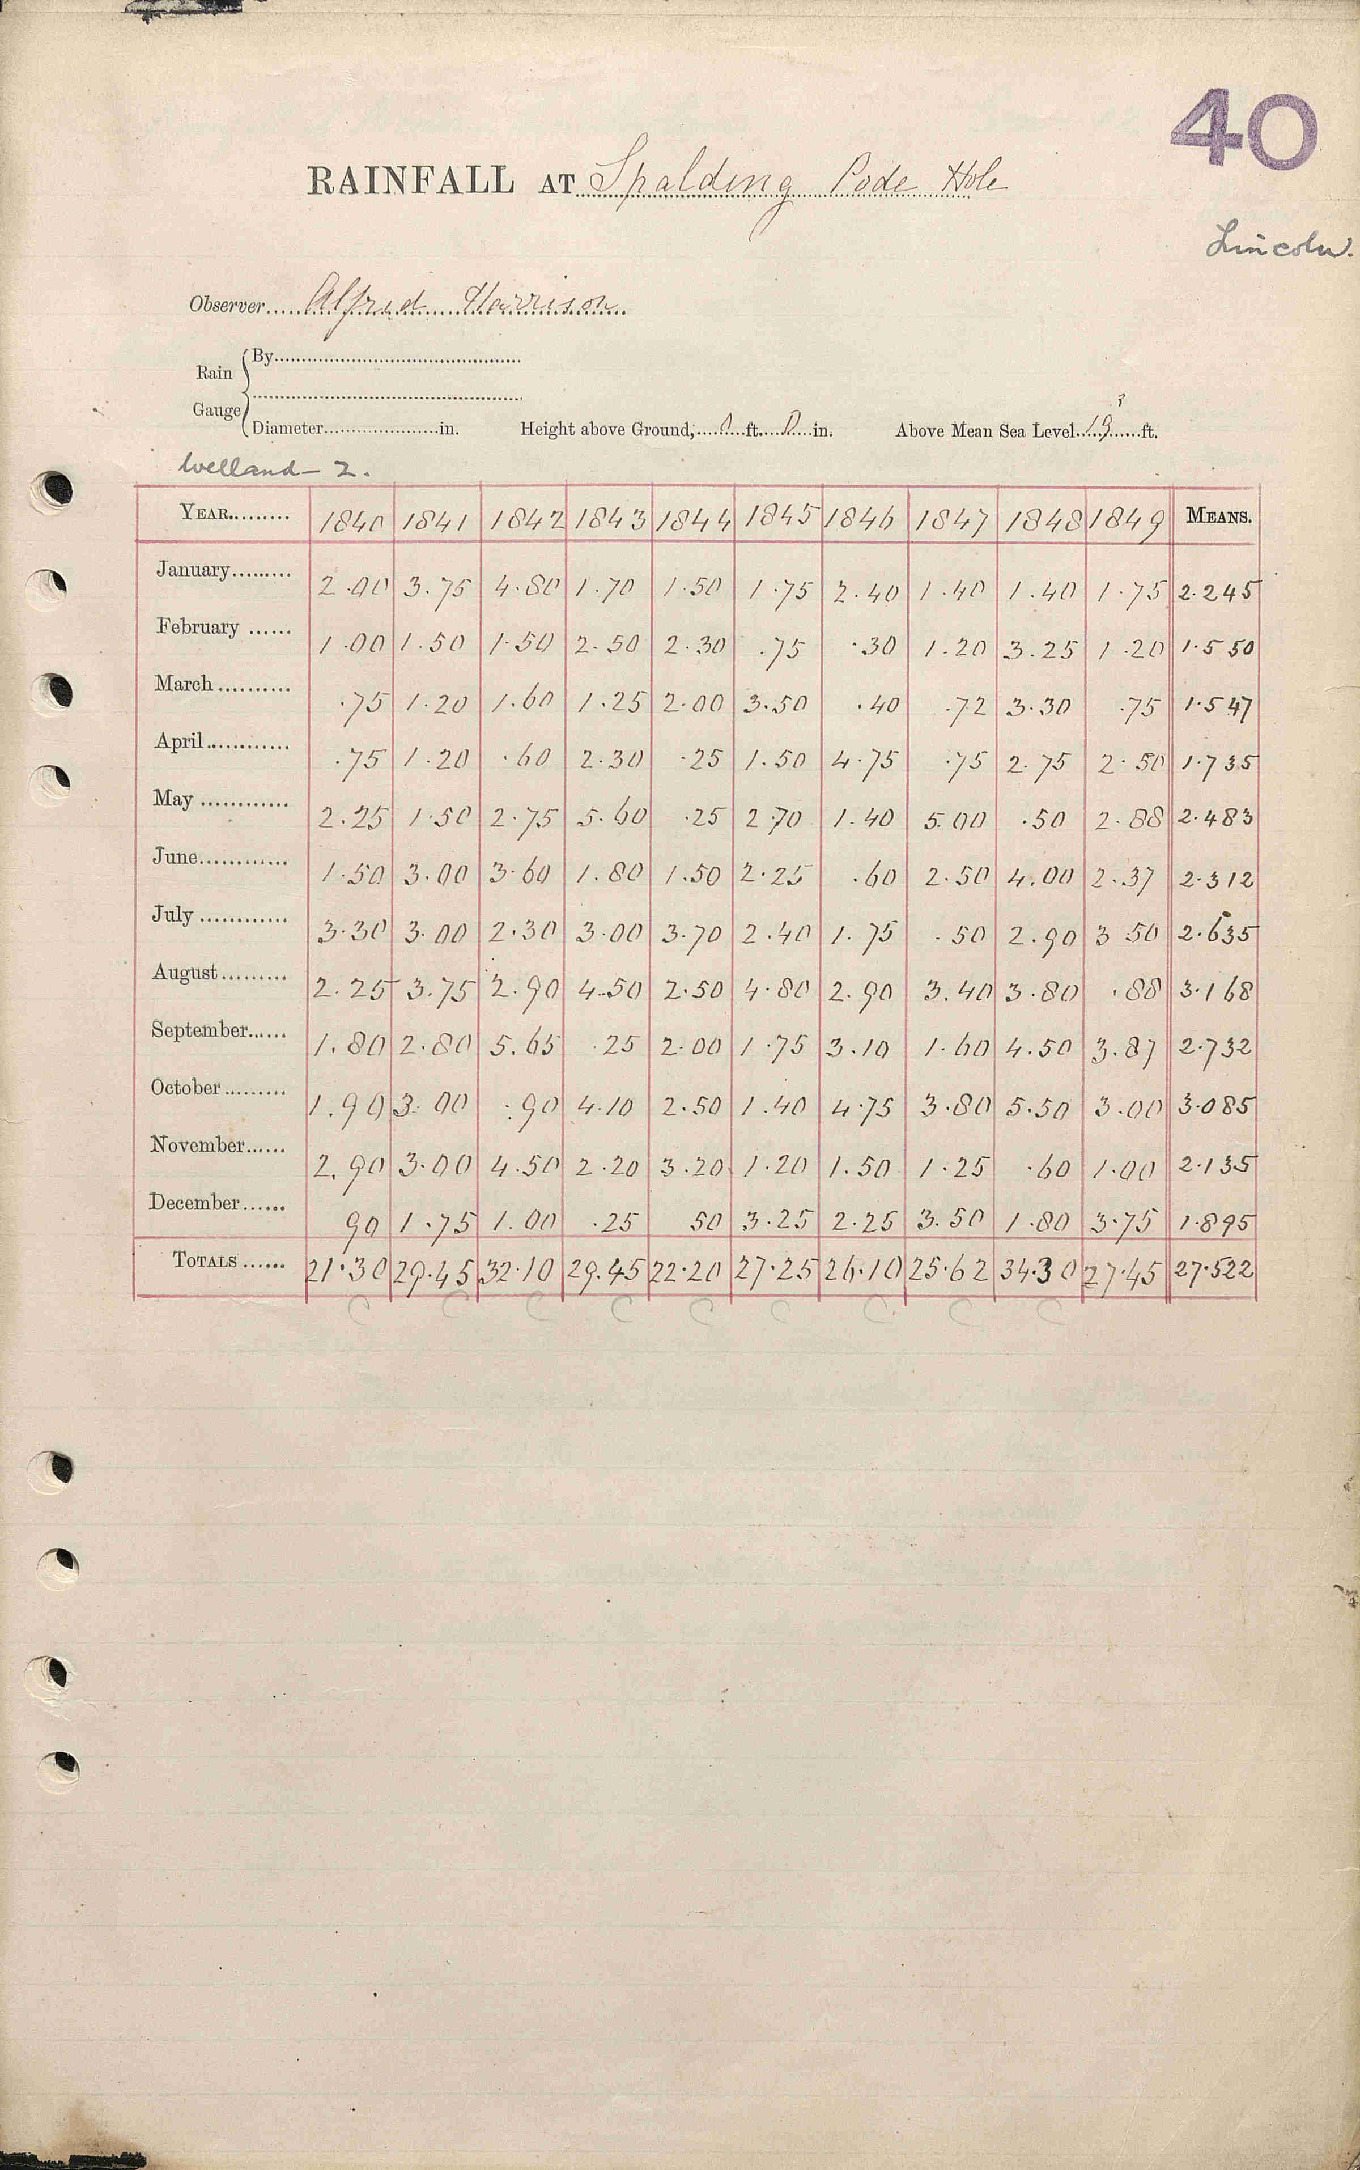 40
RAINFALL AT Spalding Pode Hole
Lincoln.
Observer Alfred Harrison
Rain Gauge
By
Diameter in. Height above Ground, 0 ft. 0 in. Above Mean Sea Level 19 ? ft.
Welland - 2.
YEAR 1840 1841 1842 1843 1844 1845 1846 1847 1848 1849 MEANS.
January 2.00 3.75 4.80 1.70 1.50 1.75 2.40 1.40 1.40 1.75 2.245
February 1.00 1.50 1.50 2.50 2.30 .75 .30 1.20 3.25 1.20 1.550
March .75 1.20 1.60 1.25 2.00 3.50 .40 .72 3.30 .75 1.547
April .75 1.20 .60 2.30 .25 1.50 4.75 .75 2.75 2.50 1.735
May 2.25 1.50 2.75 5.60 .25 2.70 1.40 5.00 .50 2.88 2.483
June 1.50 3.00 3.60 1.80 1.50 2.25 .60 2.50 4.00 2.37 2.312
July 3.30 3.00 2.30 3.00 3.70 2.40 1.75 .50 2.90 3.50 2.635
August 2.25 3.75 2.90 4.50 2.50 4.80 2.90 3.40 3.80 .88 3.168
September 1.80 2.80 5.65 .25 2.00 1.75 3.10 1.60 4.50 3.87 2.732
October 1.90 3.00 .90 4.10 2.50 1.40 4.75 3.80 5.50 3.00 3.085
November 2.90 3.00 4.50 2.20 3.20 1.20 1.50 1.25 .60 1.00 2.135
December 90 1.75 1.00 .25 50 3.25 2.25 3.50 1.80 3.75 1.895
TOTALS 21.30 29.45 32.10 29.45 22.20 27.25 26.10 25.62 34.30 27.45 27.522
C C C C C C C C C